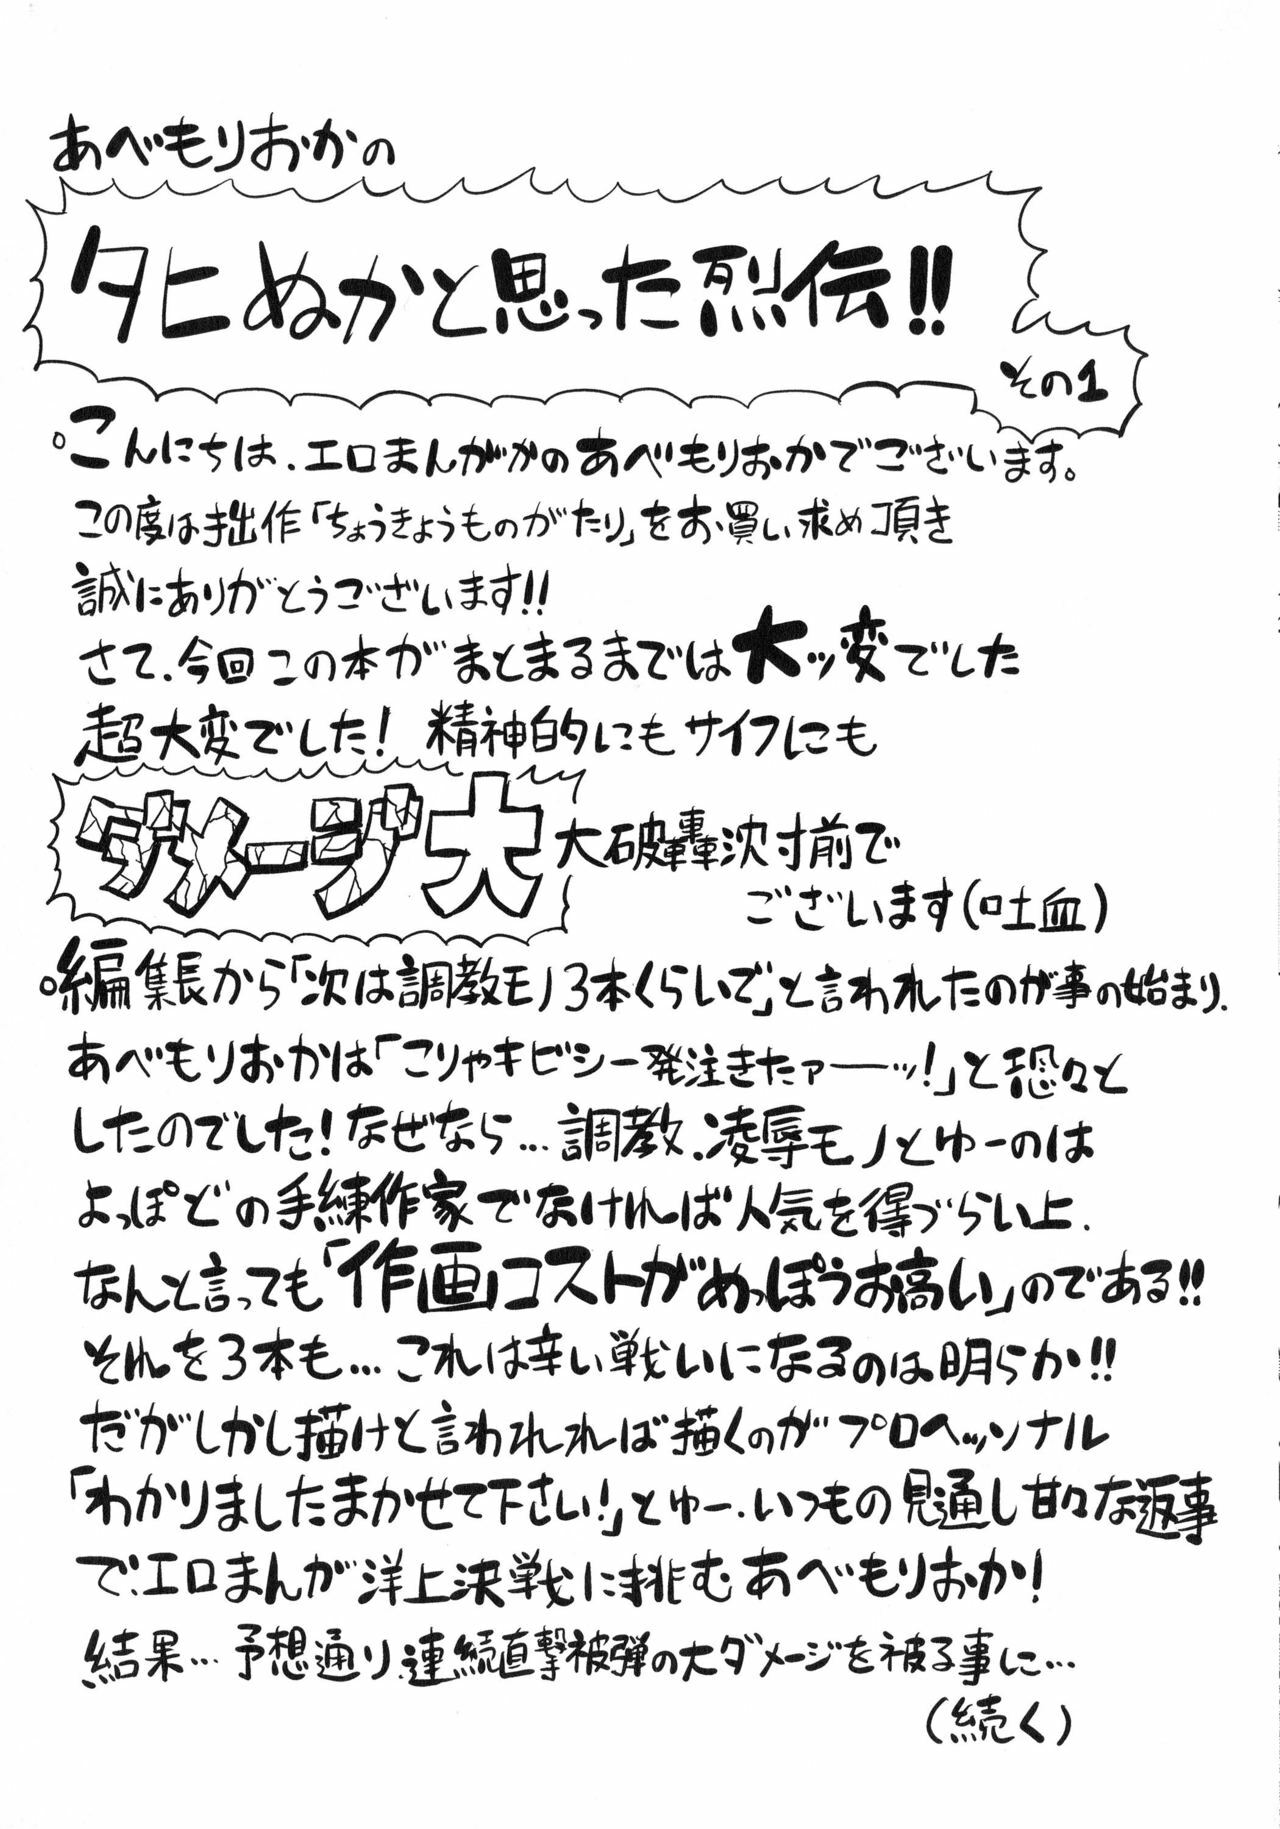 あべもりおかの
タヒぬかと思った烈伝!!
その1
。こんにちは、エロまんがかのあべもりおかでございます。
この度は拙作「ちょうきょうものがたり」をお買い求め頂き
誠にありがとうございます!!
さて、今回この本がまとまるまでは大ッ変でした
超大変でした! 精神的にもサイフにも
ダメージ大 大破轟沈寸前で
ございます(吐血)
。編集長から「次は調教モノ3本くらいで」と言われたのが事の始まり、
あべもりおかは「こりゃキビシー発注きたァーーッ!」と恐々と
したのでした!なぜなら…調教、凌辱モノとゆーのは
よっぽどの手練作家でなければ人気を得づらい上、
なんと言っても「作画コストがめっぽうお高い」のである!!
それを3本も…これは辛い戦いになるのは明らか!!
だがしかし描けと言われれば描くのがプロヘッソナル
「わかりましたまかせて下さい!」とゆー、いつもの見通し甘々な返事
で、エロまんが洋上決戦に挑むあべもりおか!
結果…予想通り、連続直撃被弾の大ダメージを被る事に…
(続く)